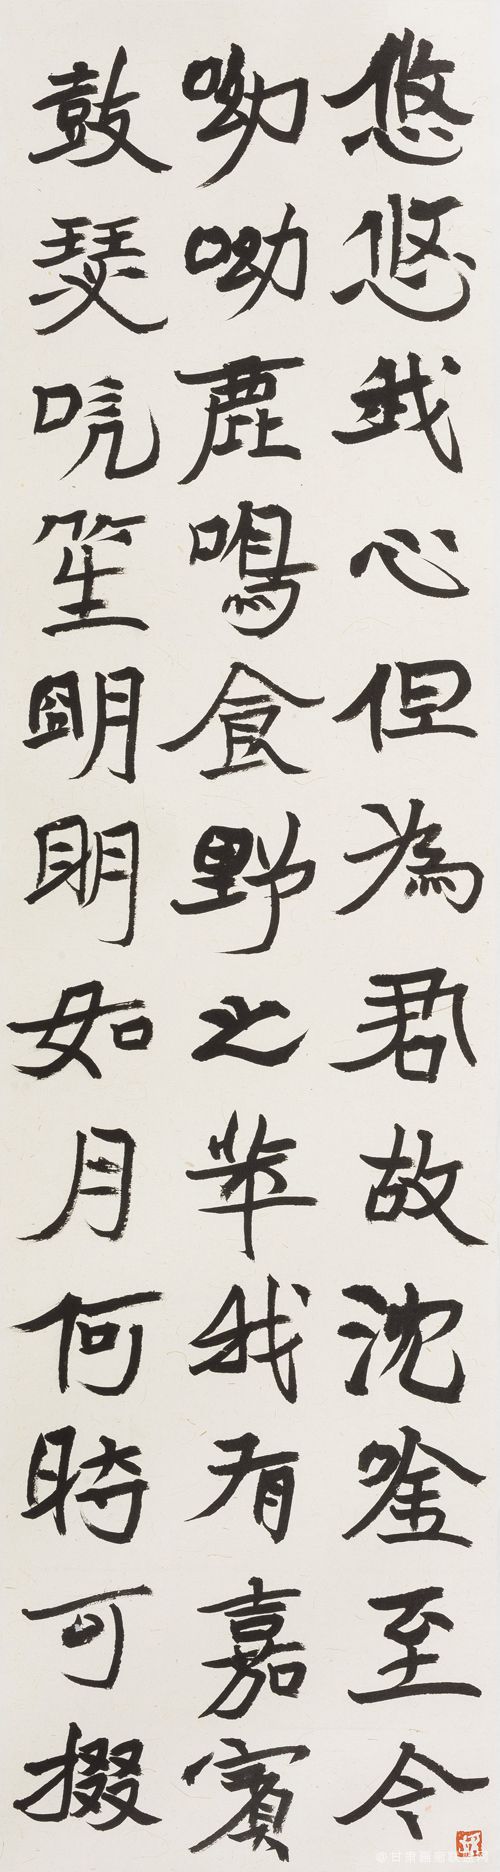 悠悠我心但為君故沈唫至今
呦呦鹿鳴食野之苹我有嘉賓
鼓瑟吹笙朙明如月何時可掇